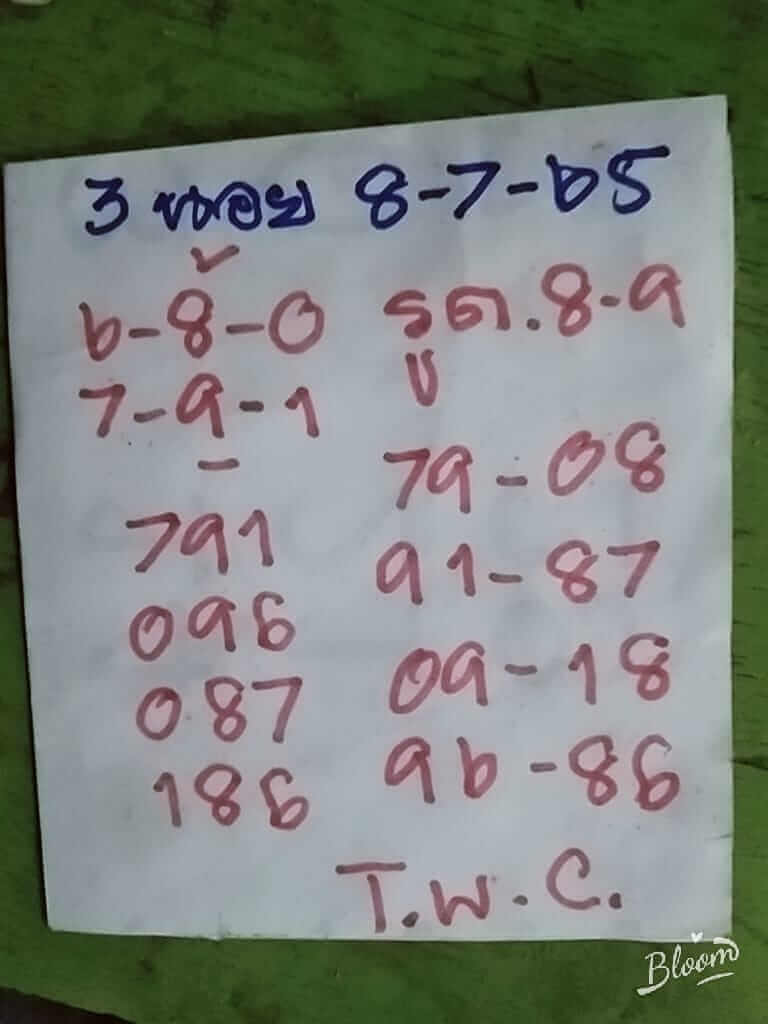 3 หอย 8-7-65
6-8-0 รูด.8-9
7-9-1 บ
791 79-08
096 91-87
087 09-18
186 96-86
T.W.C.
Bloom